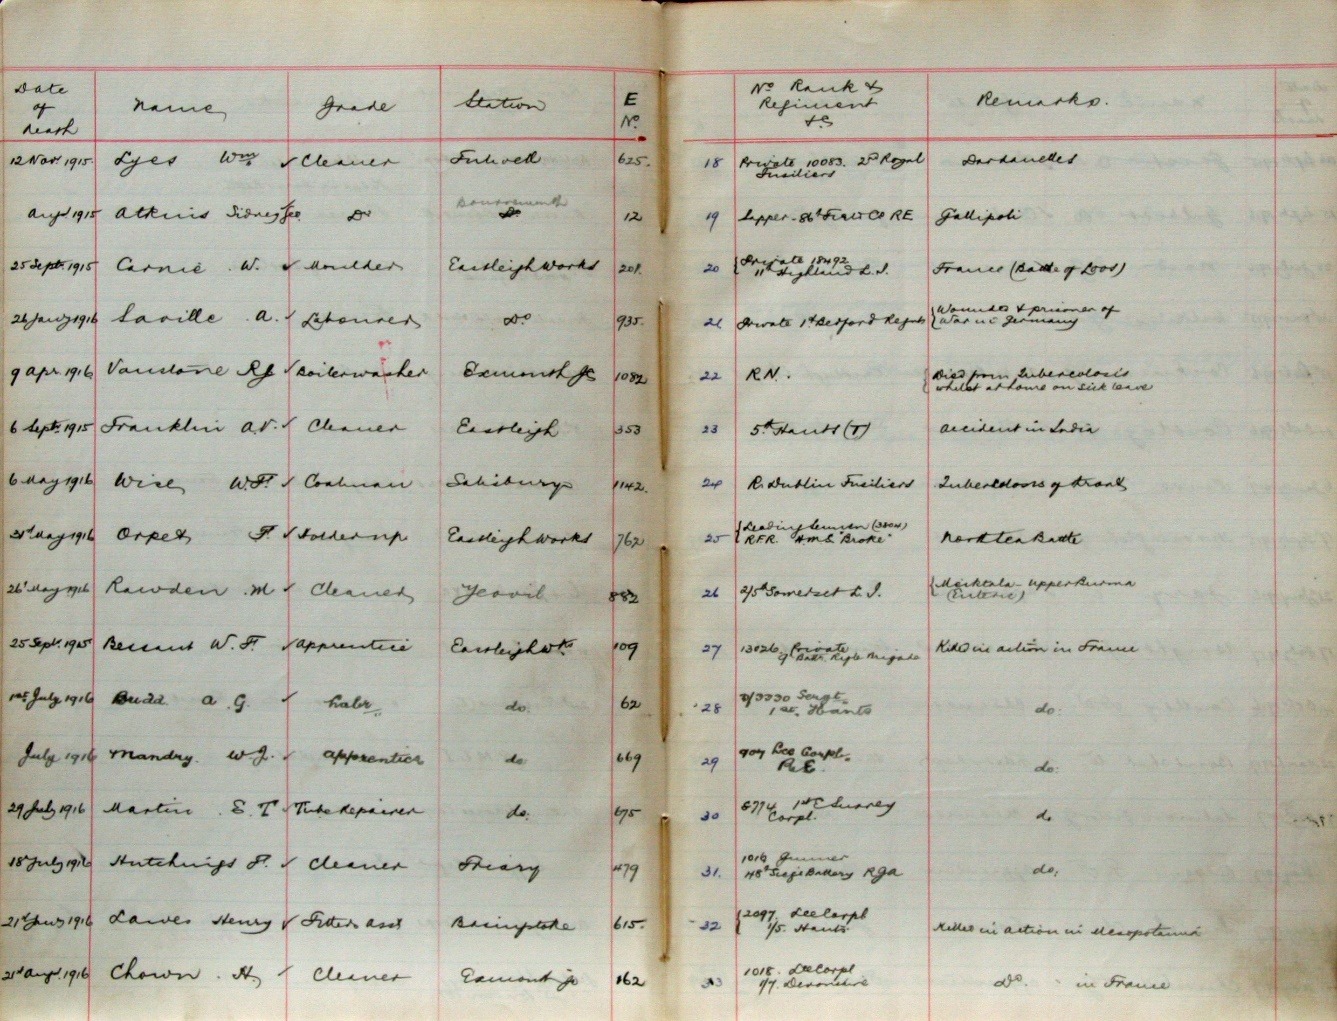 Date of Death Name Grade Station E No. No. Rank & Regiment &c Remarks.
12 Nov. 1915 Lyes Wm ✓ Cleaner Fulwell 625. 18 Private 10083. 2d Royal Fusiliers Dardanelles
Augt 1915 Atkins Sidney Do Bournemouth Do 12 19 Sapper - 86th Field Co RE Gallipoli
25 Sept. 1915 Carnie W. ✓ Moulder Eastleigh Works 201. 20 Private 18492 11th Highland L.I. France (Battle of Loos)
26 Jany 1916 Saville A. ✓ Labourer Do 935. 21 Private 1st Bedford Regnt Wounded & prisoner of War in Germany
9 Apr. 1916 Vanstone RJ ✓ Boilerwasher Exmouth Jc 1082 22 R.N. Died from Tuberculosis whilst at home on sick leave
6 Sept. 1915 Franklin A.V. ✓ Cleaner Eastleigh 353 23 5th Hants (T) Accident in India
6 May 1916 Wise W.F. ✓ Coalman Salisbury 1142. 24 R. Dublin Fusiliers Tuberculosis of
31st May 1916 Orpet F. ✓ Holderup Eastleigh Works 762 25 Leading Seaman (3804) R.F.R. H.M.S. "Broke" North Sea Battle
26th May 1916 Rawden M ✓ Cleaner Yeovil 882 26 2/5th Somerset L.I. Meiktala - Upper Burma (Enteric)
25 Sept. 1915 Bessant W.F. ✓ Apprentice Eastleigh Wks 109 27 13026 Private 9 Batt. Rifle Brigade Killed in action in France
1st July 1916 Budd A.G. ✓ Labr. do. 62 28 3/3330 Sergt. 1st. Hants do.
July 1916 Mandry. W.J. ✓ Apprentice do 669 29 907 Lce Corpl. R.E. do.
29 July 1916 Martin E.T ✓ Tube Repairer do. 675 30 8774 1st E Surrey Corpl. do
18th July 1916 Hutchings F. ✓ Cleaner Friary 479 31. 1016 Gunner 48th Siege Battery RGA do.
21st Jany 1916 Lawes Henry ✓ Fitters Asst Basingstoke 615. 32 2097. Lce Corpl 1/5. Hants Killed in action in Mesopotamia
21st Augt. 1916 Chown H. ✓ Cleaner Exmouth Jc 162 33 1018. Lce Corpl 1/7. Devonshire Do. in France